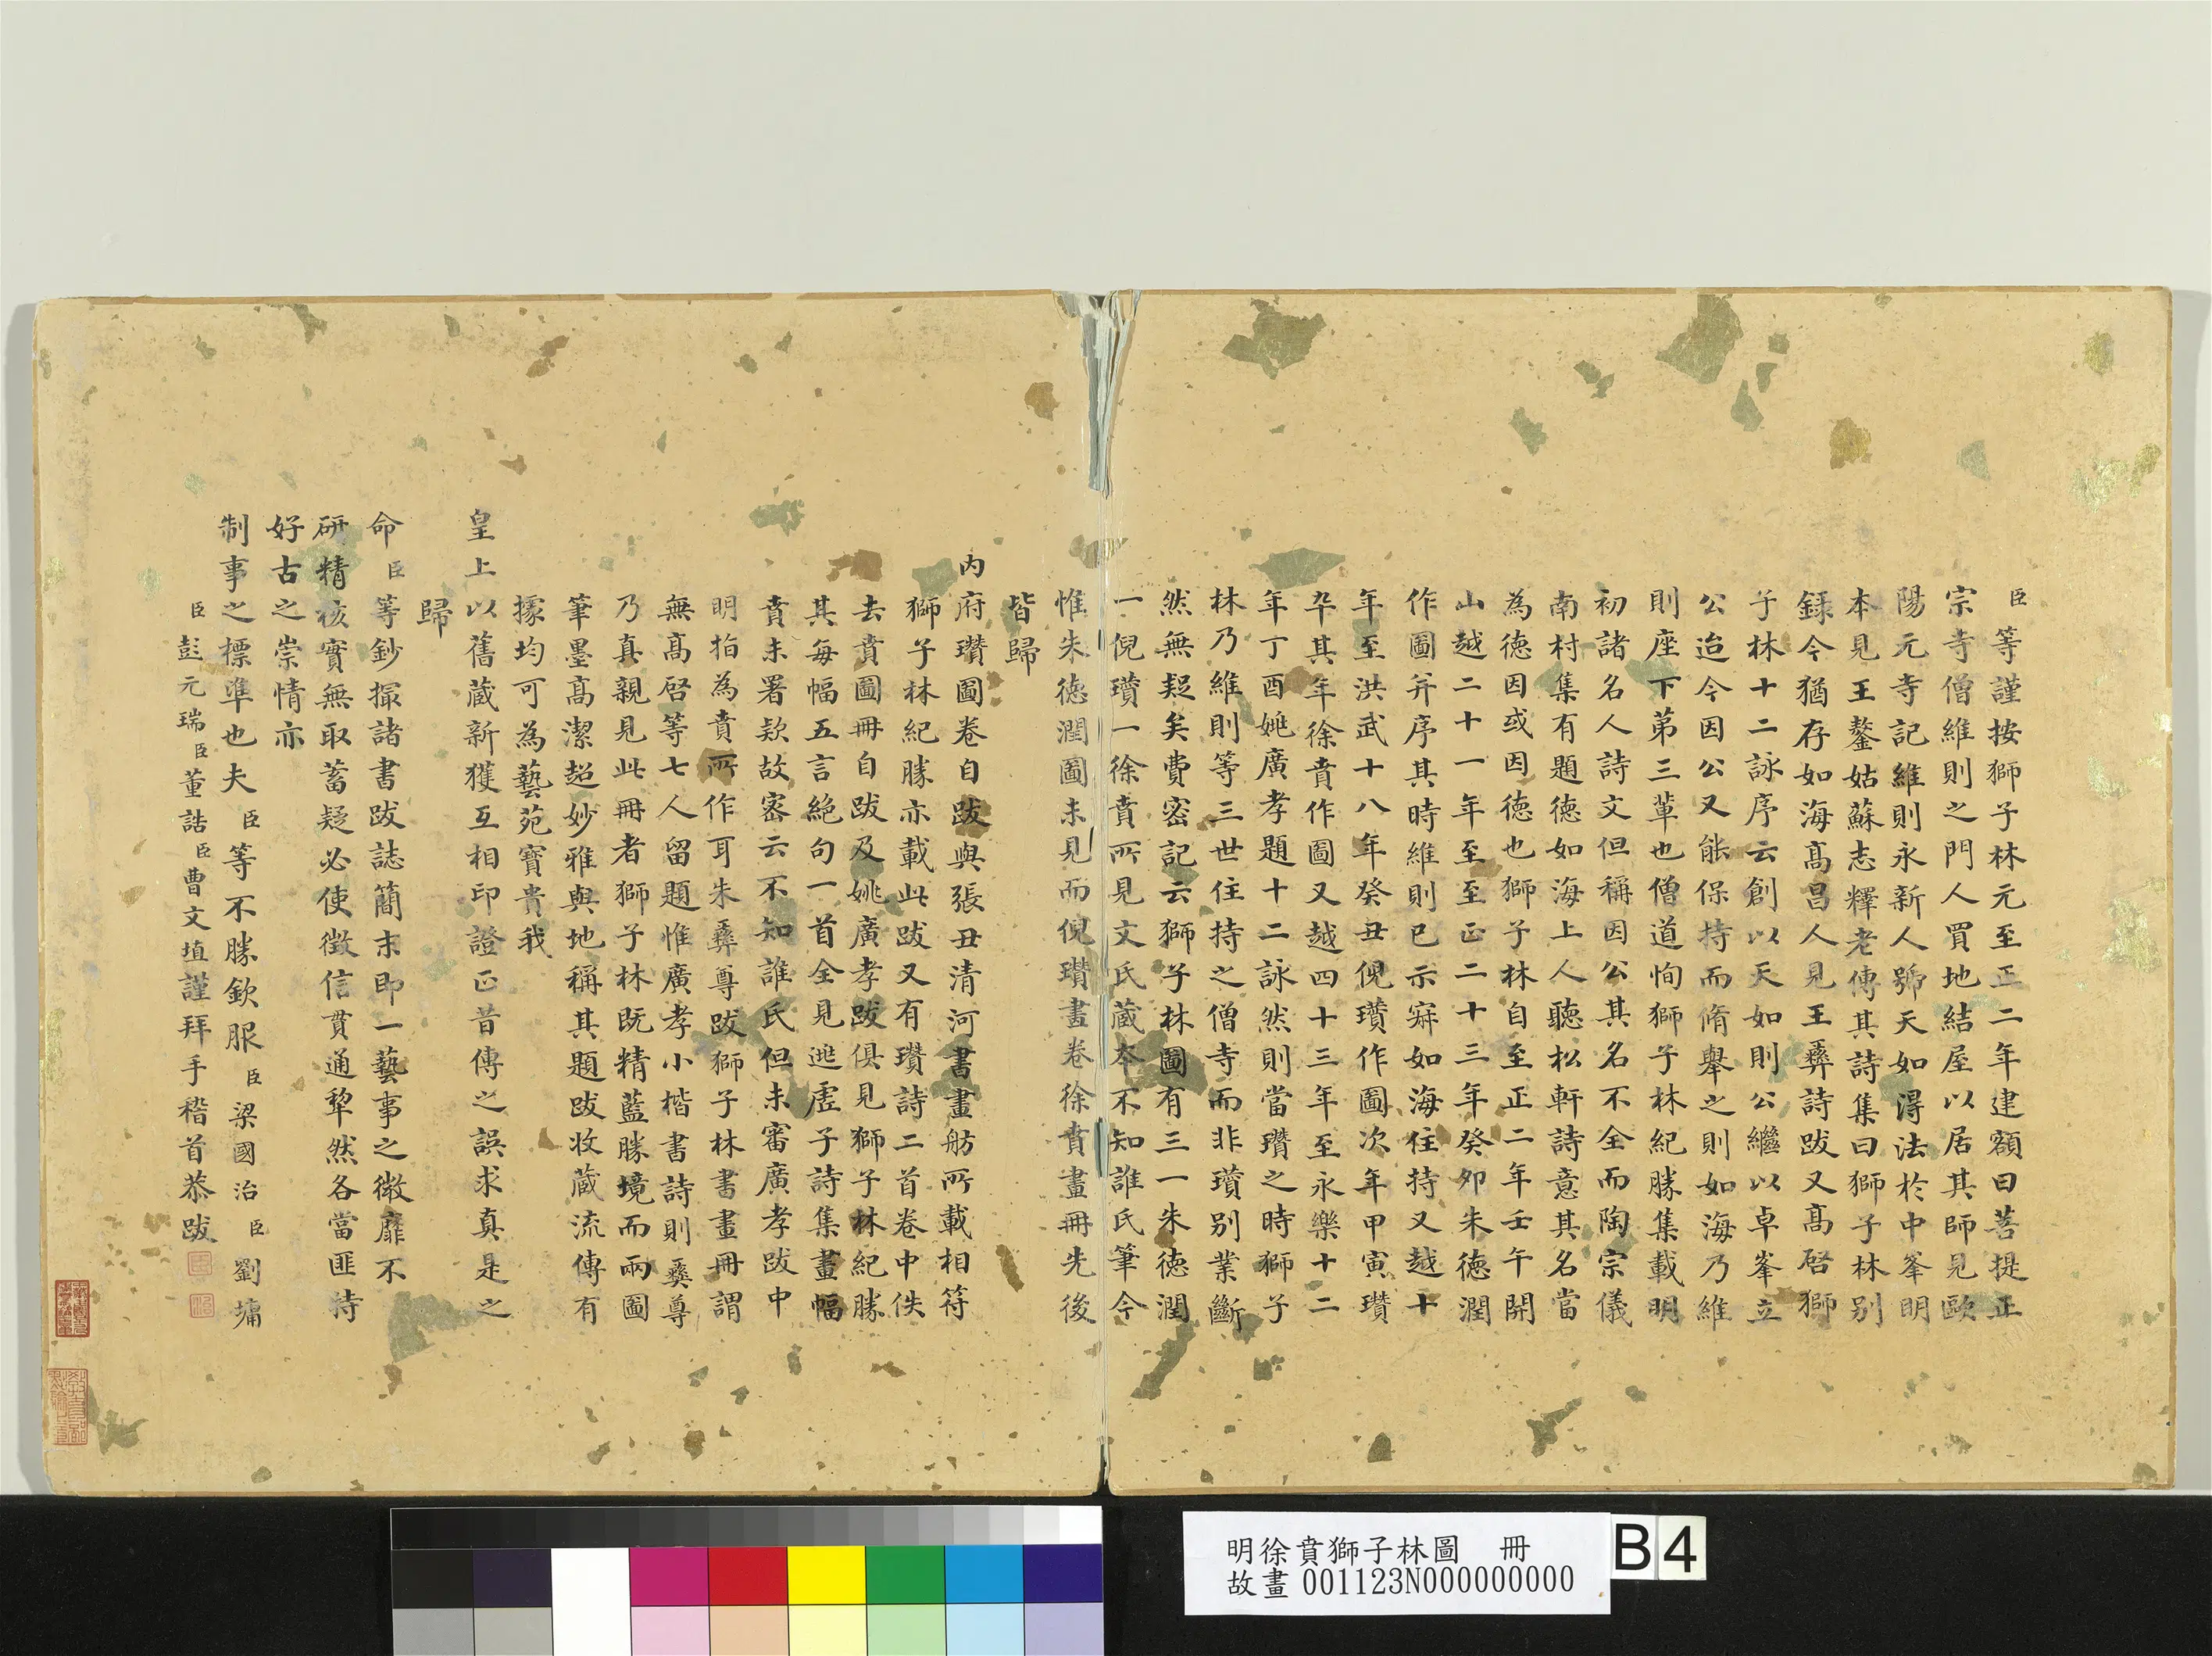 臣等謹按獅子林元至正二年建額曰菩提正
宗寺僧維則之門人買地結屋以居其師見歐
陽元寺記維則永新人號天如得法於中峯明
本見王鏊姑蘇志釋老傳其詩集曰獅子林別
錄今猶存如海髙昌人見王彝詩跋又髙啓獅
子林十二詠序云創以天如則公繼以卓峯立
公迨今因公又能保持而脩舉之則如海乃維
則座下第三輩也僧道恂獅子林紀勝集載明
初諸名人詩文但稱因公其名不全而陶宗儀
南村集有題德如海上人聽松軒詩意其名當
為德因或因德也獅子林自至正二年壬午開
山越二十一年至至正二十三年癸卯朱德潤
作圖并序其時維則已示寂如海住持又越十
年至洪武十八年癸丑倪瓚作圖次年甲寅瓚
卒其年徐賁作圖又越四十三年至永樂十二
年丁酉姚廣孝題十二詠然則當瓚之時獅子
林乃維則等三世住持之僧寺而非瓚別業斷
然無疑矣費密記云獅子林圖有三一朱德潤
一倪瓚一徐賁所見文氏藏本不知誰氏筆今
惟朱德潤圖未見而倪瓚畫卷徐賁畫冊先後
皆歸
內府瓚圖卷自跋與張丑清河書畫舫所載相符
獅子林紀勝亦載此跋又有瓚詩二首卷中佚
去賁圖冊自跋及姚廣孝跋俱見獅子林紀勝
其每幅五言絶句一首全見逃虛子詩集畫幅
賁未署款故密云不知誰氏但未審廣孝跋中
明指為賁所作耳朱彝尊跋獅子林書畫冊謂
無髙啓等七人留題惟廣孝小楷書詩則彝尊
乃真親見此冊者獅子林既精藍勝境而兩圖
筆墨髙潔超妙雅與地稱其題跋收藏流傳有
據均可為藝苑寶貴我
皇上以舊藏新獲互相印證正昔傳之誤求真是之
歸
命臣等鈔撮諸書跋誌簡末即一藝事之微靡不
研精核實無取蓄疑必使徵信貫通犂然各當匪特
好古之崇情亦
制事之標準也夫臣等不勝欽服臣梁國治臣劉墉
臣彭元瑞臣董誥臣曹文埴謹拜手稽首恭跋
明徐賁獅子林圖　冊
故畫 001123N000000000
B4